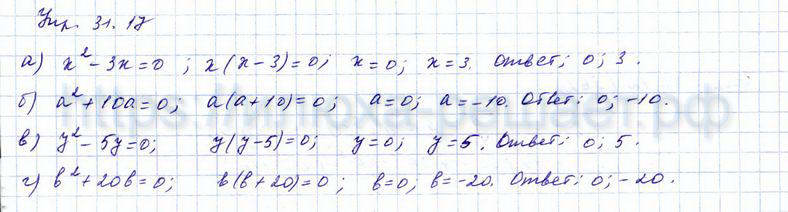 Упр. 31.17
а) x² - 3x = 0 ; x(x - 3) = 0; x = 0; x = 3. Ответ: 0; 3.
б) a² + 10a = 0; a(a + 10) = 0; a = 0; a = -10. Ответ: 0; -10.
в) y² - 5y = 0; y(y - 5) = 0; y = 0; y = 5. Ответ: 0; 5.
г) b² + 20b = 0; b(b + 20) = 0; b = 0; b = -20. Ответ: 0; -20.